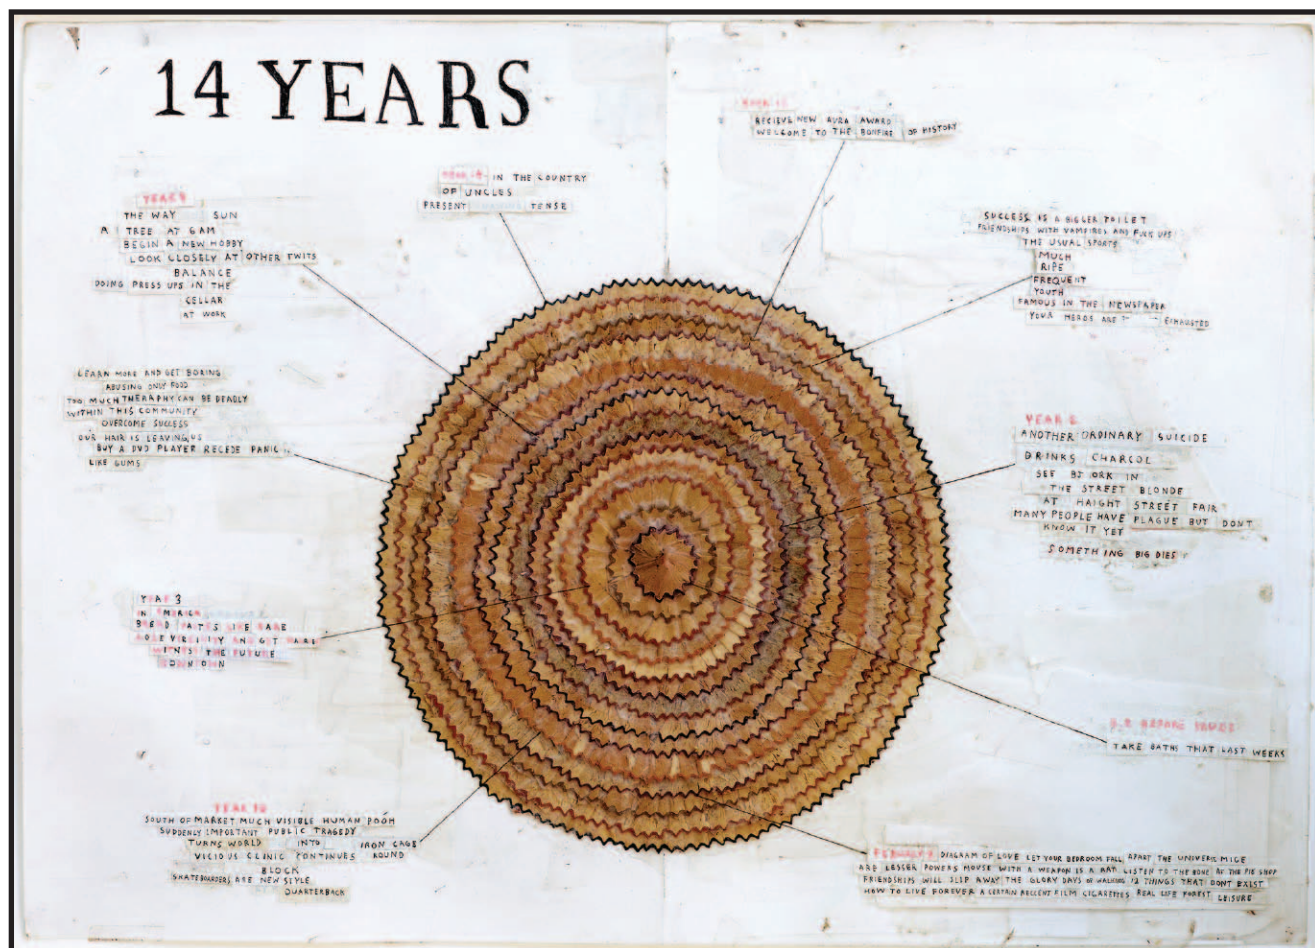 14 YEARS
RECIEVE NEW AURA AWARD
WELCOME TO THE BONFIRE OF HISTORY
IN THE COUNTRY
OF UNCLES
PRESENT TENSE
YEAR 9
THE WAY SUN
A TREE AT 6AM
BEGIN A NEW HOBBY
LOOK CLOSELY AT OTHER TWITS
BALANCE
DOING PRESS UPS IN THE
CELLAR
AT WORK
SUCCESS IS A BIGGER TOILET
FRIENDSHIPS WITH VAMPIRES AND FUCK UPS
THE USUAL SPORTS
MUCH
RIPE
FREQUENT
YOUTH
FAMOUS IN THE NEWSPAPER
YOUR HEROS ARE EXHAUSTED
LEARN MORE AND GET BORING
ABUSING ONLY FOOD
TOO MUCH THERAPHY CAN BE DEADLY
WITHIN THIS COMMUNITY
OVERCOME SUCCESS
OUR HAIR IS LEAVING US
BUY A DVD PLAYER RECEDE PANIC
LIKE GUMS
ANOTHER ORDINARY SUICIDE
DRINKS CHARCOL
SEE BJORK IN
THE STREET BLONDE
AT HAIGHT STREET FAIR
MANY PEOPLE HAVE PLAGUE BUT DONT
KNOW IT YET
SOMETHING BIG DIES
YEAR 3
IN AMERICA
BREAD TASTES LIKE CAKE
AND GET
THE FUTURE
TAKE BATHS THAT LAST WEEKS
YEAR 10
SOUTH OF MARKET MUCH VISIBLE HUMAN POOH
SUDDENLY IMPORTANT PUBLIC TRAGEDY
TURNS WORLD INTO IRON CAGE
VICIOUS CLINIC CONTINUES ROUND
BLOCK
SKATEBOARDERS ARE NEW STYLE
QUARTERBACK
DIAGRAM OF LOVE LET YOUR BEDROOM FALL APART THE UNIVERS MICE
ARE LESSER POWERS MOUSE WITH A WEAPON IS A RAT LISTEN TO THE BONE AT THE PIE SHOP
FRIENDSHIPS WILL SLIP AWAY THE GLORY DAYS OF WALKING 12 THINGS THAT DONT EXIST
HOW TO LIVE FOREVER A CERTAIN RECENT FILM CIGARETTES REAL LIFE FOREST LEISURE